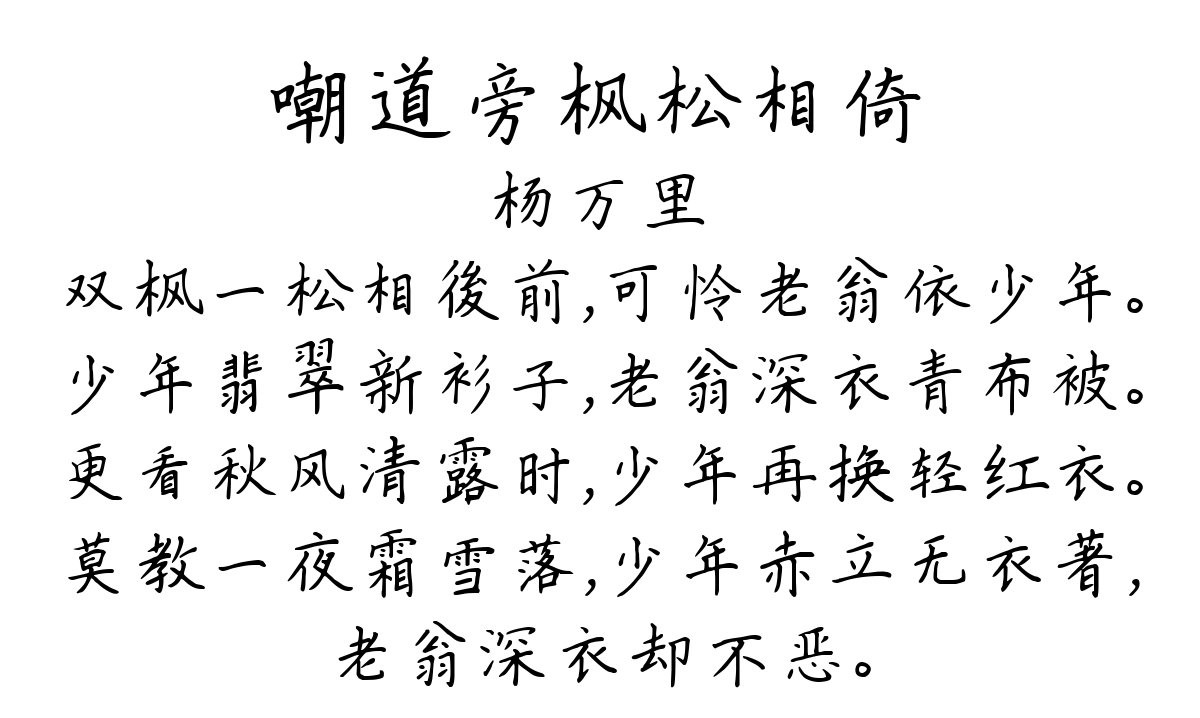 嘲道旁枫松相倚
杨万里
双枫一松相後前,可怜老翁依少年。
少年翡翠新衫子,老翁深衣青布被。
更看秋风清露时,少年再换轻红衣。
莫教一夜霜雪落,少年赤立无衣著,
老翁深衣却不恶。